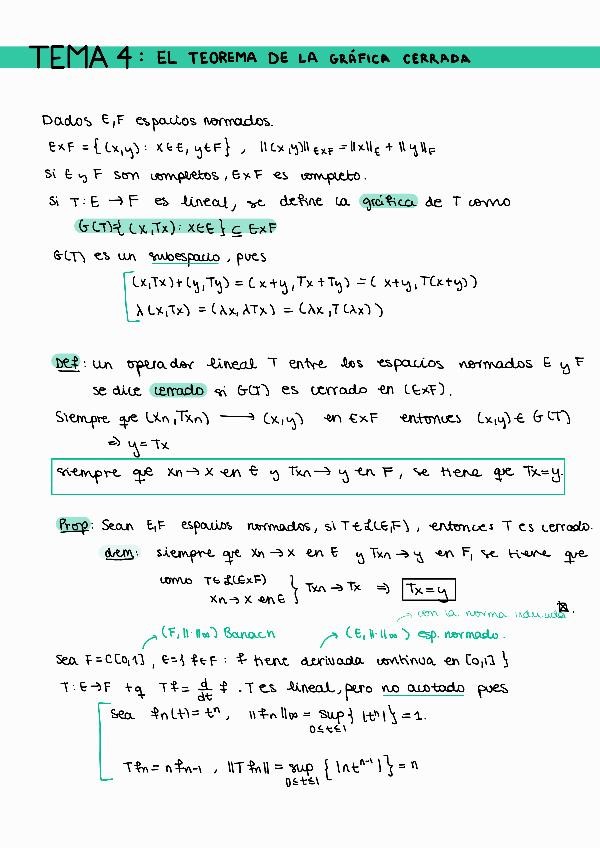 TEMA 4: EL TEOREMA DE LA GRÁFICA CERRADA
Dados E,F espacios normados.
E×F = {(x,y): x∈E, y∈F}, ||(x,y)||_{E×F} = ||x||_E + ||y||_F
Si E y F son completos, E×F es completo.
Si T: E → F es lineal, se define la gráfica de T como
G(T)={(x,Tx): x∈E} ⊆ E×F
G(T) es un subespacio, pues
(x,Tx)+(y,Ty) = (x+y, Tx+Ty) = (x+y, T(x+y))
λ(x,Tx) = (λx, λTx) = (λx, T(λx))
Def: un operador lineal T entre los espacios normados E y F
se dice cerrado si G(T) es cerrado en (E×F).
Siempre que (xn,Txn) → (x,y) en E×F entonces (x,y) ∈ G(T)
⇒ y=Tx
siempre que xn→x en E y Txn→y en F, se tiene que Tx=y.
Prop: Sean E,F espacios normados, si T∈L(E,F), entonces T es cerrado.
dem: siempre que xn→x en E y Txn→y en F, se tiene que
como T∈L(E×F)
xn→x en E } Txn→Tx ⇒ Tx=y
con la norma inducida
(F,||·||∞) Banach (E,||·||∞) esp. normado.
Sea F=C[0,1], E={f∈F: f tiene derivada continua en [0,1]}
T: E→F tq Tf = d/dt f. T es lineal, pero no acotado pues
Sea fn(t)=t^n, ||fn||∞ = sup{|t^n|} = 1.
0≤t≤1
Tfn = nfn-1, ||Tfn|| = sup{|nt^{n-1}|} = n
0≤t≤1